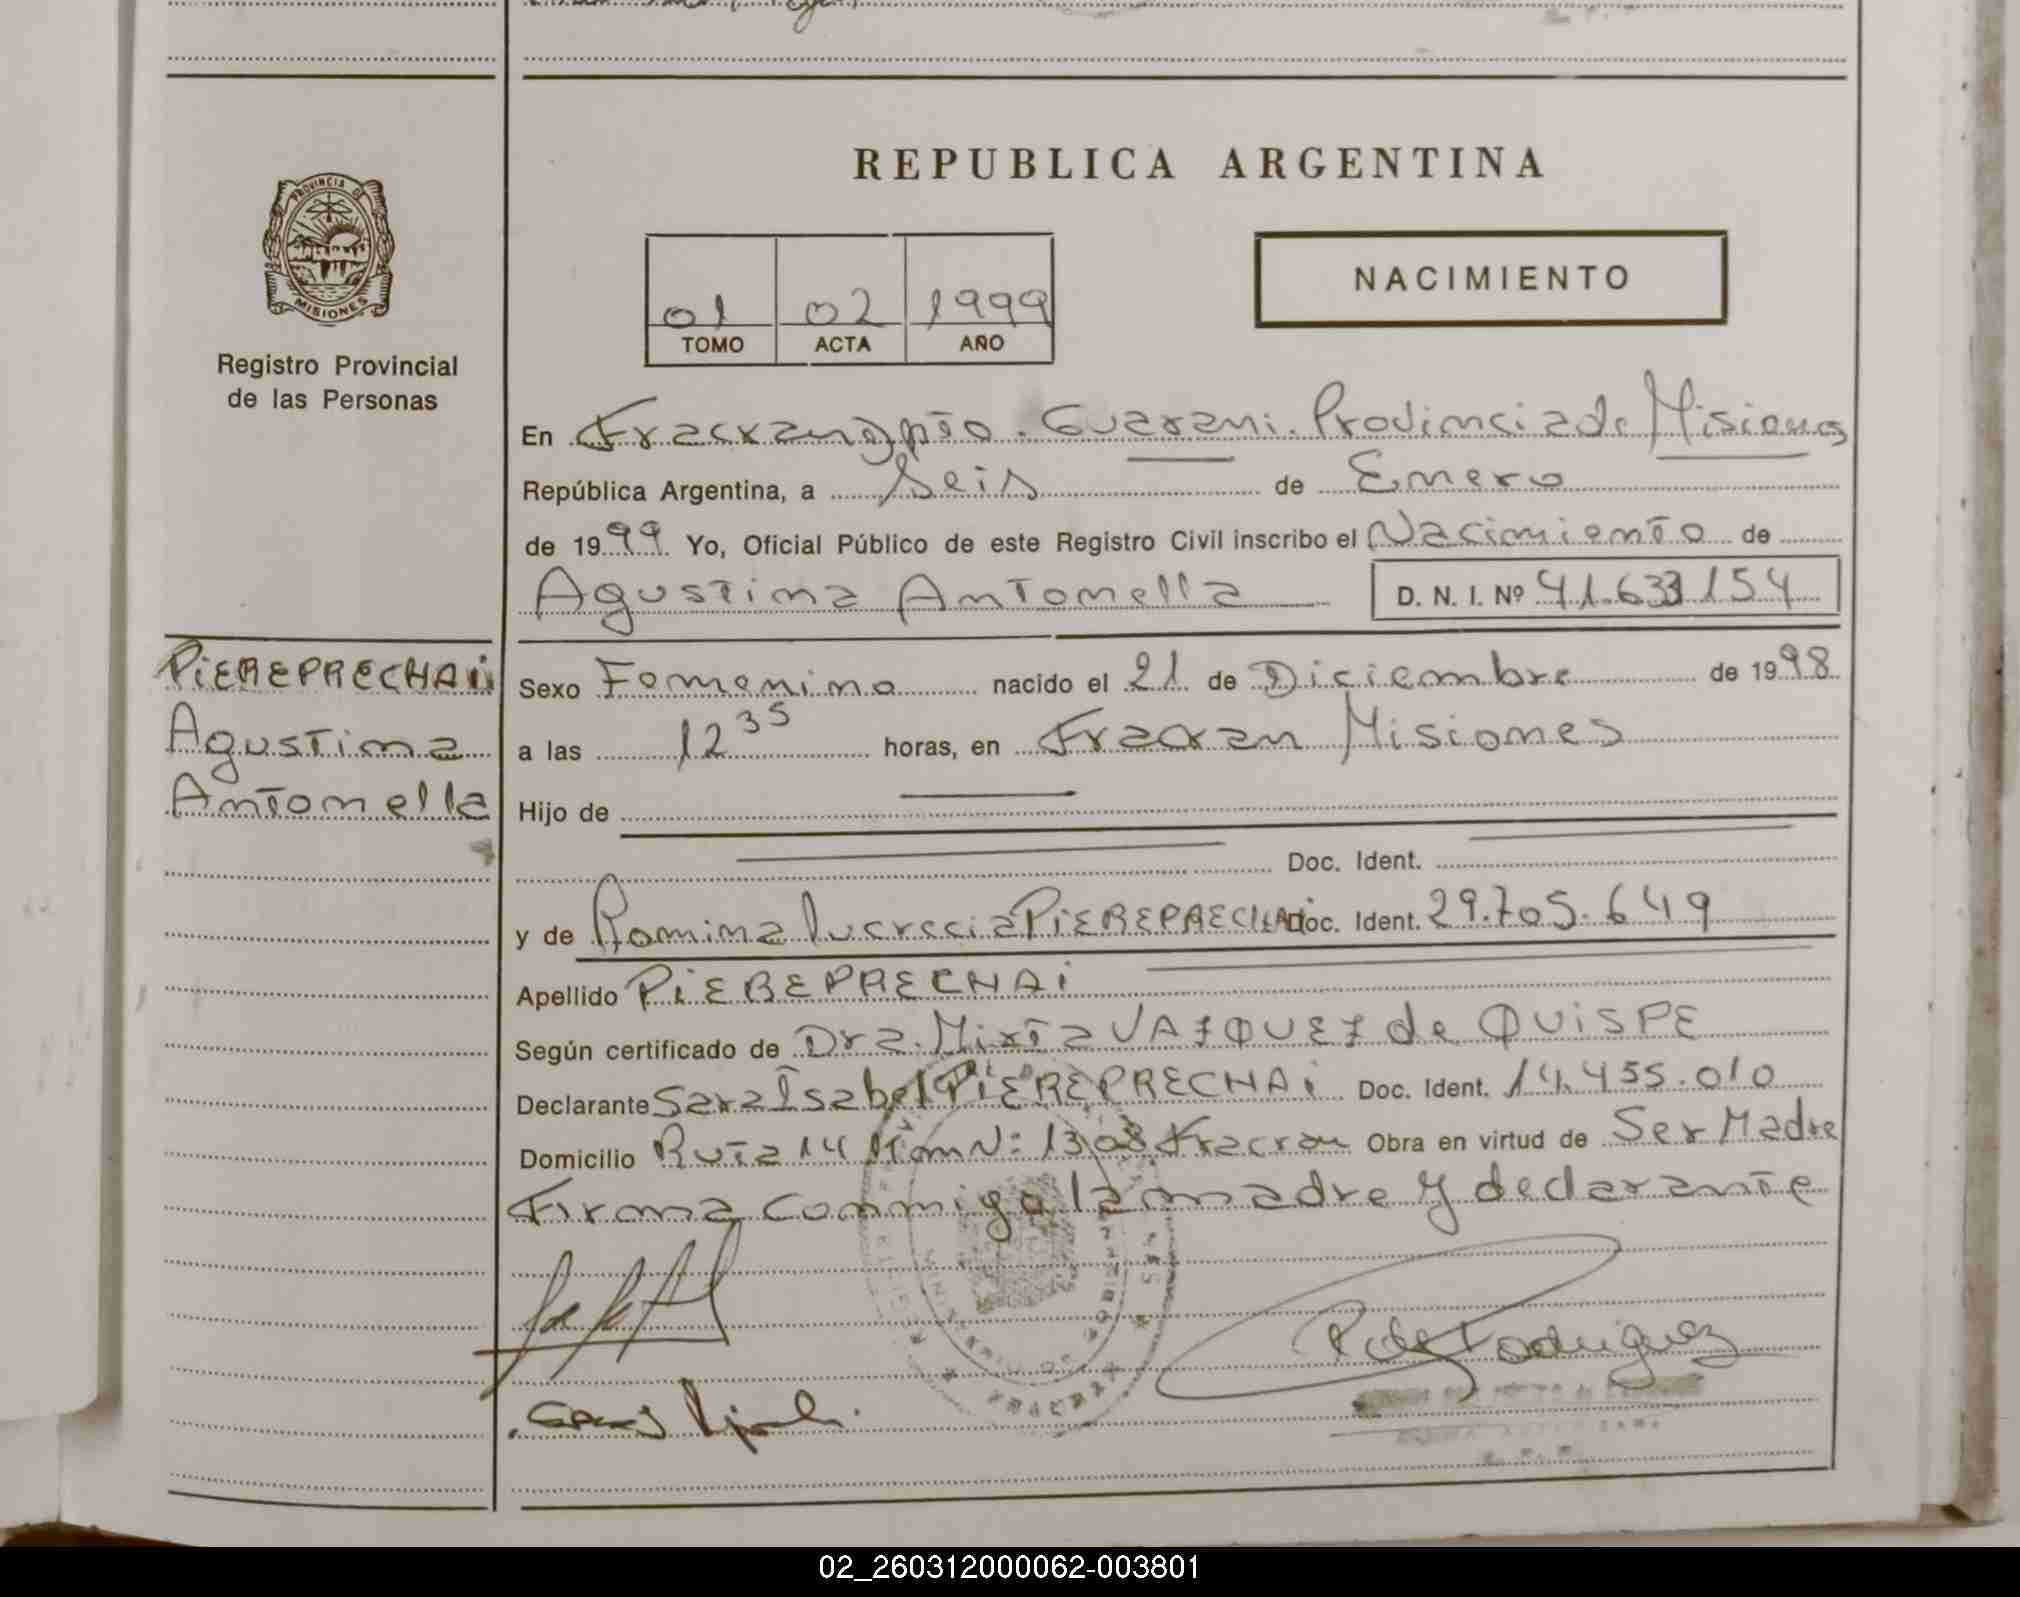 REPUBLICA ARGENTINA
PROVINCIA DE
MISIONES
Registro Provincial
de las Personas
01 02 1999
TOMO ACTA AÑO
NACIMIENTO
En Fracran Dpto. Guarani. Provincia de Misiones
República Argentina, a Seis de Enero
de 1999. Yo, Oficial Público de este Registro Civil inscribo el Nacimiento de
Agustina Antonella D. N. I. Nº 41.633.154
PiEREPRECHAi
Agustina
Antonella
Sexo Femenino nacido el 21 de Diciembre de 1998
a las 12 35 horas, en Fracran Misiones
Hijo de
Doc. Ident.
y de Romina Lucrecia PiEREPRECHAi Doc. Ident. 29.705.649
Apellido PiEREPRECHAi
Según certificado de Dra. Mirta VAZQUEZ de QUiSPE
Declarante Sara Isabel PiEREPRECHAi Doc. Ident. 14.455.010
Domicilio Ruta 14 Km Nº: 1308 Fracran Obra en virtud de Ser Madre
Firma conmigo la madre y declarante
Rodriguez
02_260312000062-003801